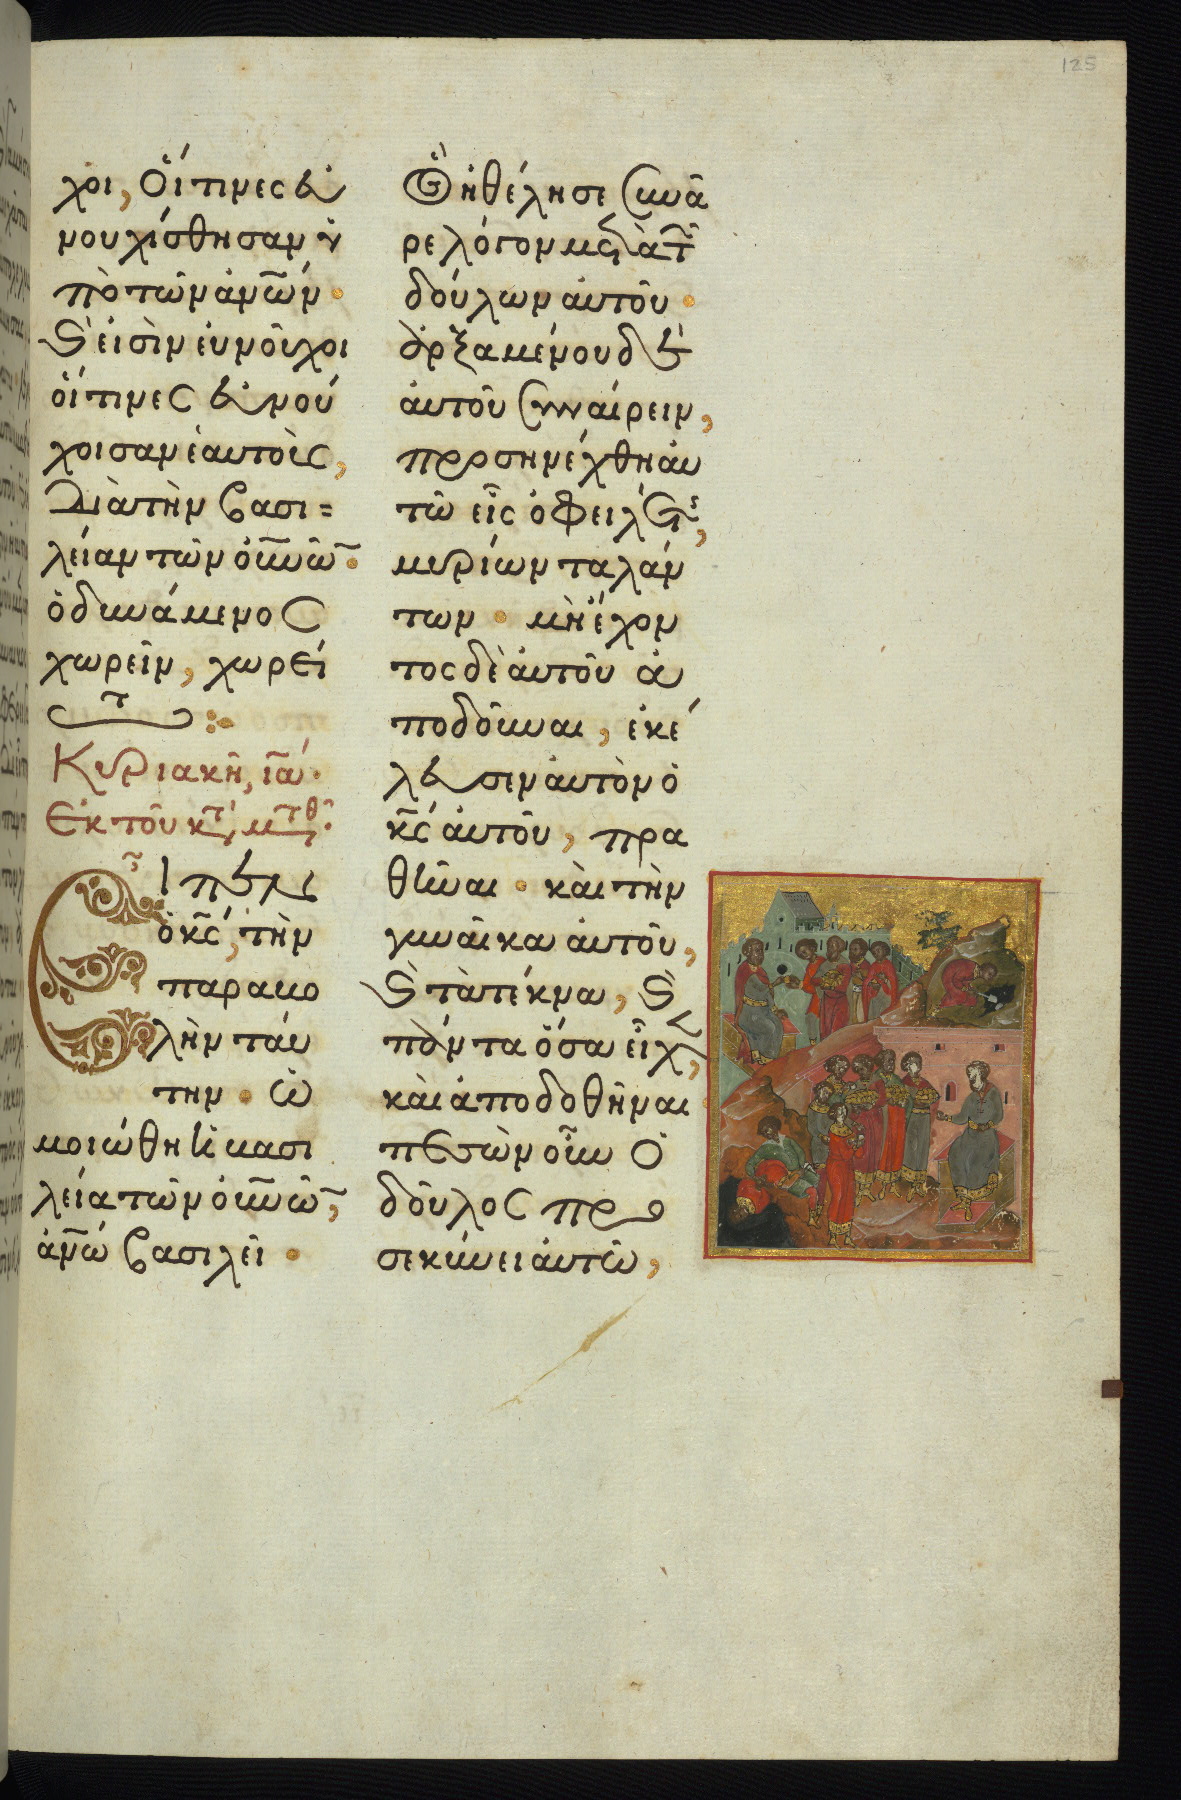 125
χοι, Οἵτινες εὐ
νουχίσθησαν ὑ
πὸ τῶν ἀν͞ων·
ϗ εἰσὶν εὐνοῦχοι
οἵτινες εὐνού
χοισαν ἑαυτοὶς,
Διὰ τὴν βασι=
λείαν τῶν οὐ͞νῶ·
ὁ δυνάμενος
χωρεῖν, χωρεί
τ
Κυριακῆ, ια·
Ἐκ τοῦ κτ, μτθ·
Εἶπεν
ὁ κ͞ς, τὴν
παραβο
λὴν ταύ
την· Ὡ
μοιώθη ἡ βασι
λεία τῶν οὐ͞νῶ,
ἀν͞ω βασιλεῖ·
Ὃ ἠθέλησε συνᾶ
ρε λόγον μετὰ τ͂
δούλων αὐτοῦ·
ἀρξαμένου δὲ
αὐτοῦ συναίρειν,
προσηνέχθη αὐ
τῶ εἷς ὀφειλέτ,
μυρίων ταλάν
των· μὴ ἔχον
τος δὲ αὐτοῦ ἀ
ποδοῦναι, ἐκέ
λευσεν αὐτὸν ὁ
κ͞ς αὐτοῦ, πρα
θῆναι· καὶ τὴν
γυναῖκα αὐτοῦ,
ϗ τὰ τέκνα, ϗ
πάντα ὅσα εἶχ,
καὶ ἀποδοθῆναι
πεσὼν οὖν Ὁ
δοῦλος προ
σεκύνει αὐτῶ,